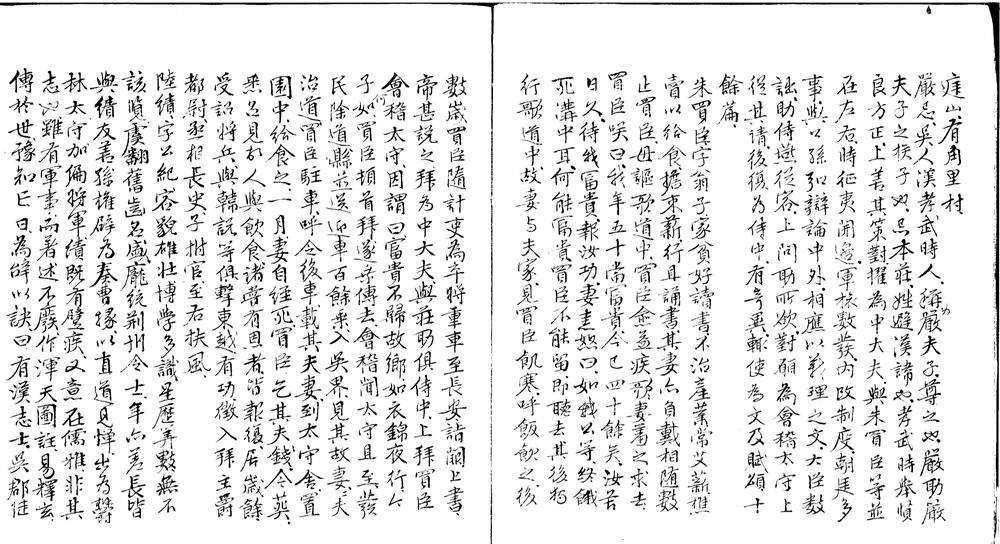 庭山有甪里村
嚴忌吳人漢孝武時人稱嚴夫子尊之也嚴助嚴
夫子之族子也忌本莊姓避漢諱也孝武時舉賢
良方正上善其策對擢為中大夫與朱買臣等並
在左右時征東開邊軍旅數發內改制度朝廷多
事與公孫弘辯論中外相應以義理之文大臣數
詘助侍讌從容上問助所欲對願為會稽太守上
從其請後復為侍中有奇異輒使為文及賦頌十
餘篇
朱買臣字翁子家貧好讀書不治產業常艾薪樵
賣以給食擔束薪行且誦書其妻亦自戴相隨數
止買臣毋謳歌道中買臣愈益疾歌妻羞之求去
買臣笑曰我年五十當富貴今已四十餘矣汝苦
日久待我富貴報汝功妻恚怒曰如餓公等終餓
死溝中耳何能富貴買臣不能留即聽去其後獨
行歌道中故妻与夫家見買臣飢寒呼飯飲之後
數歲買臣隨計吏為卒將重車至長安詣闕上書
帝甚說之拜為中大夫與莊助俱侍中上拜買臣
會稽太守因謂曰富貴不歸故鄉如衣錦夜行今
子如何買臣頓首拜遂乘傳去會稽聞太守且至發
民除道縣並送迎車百餘乘入吳界見其故妻夫
治道買臣駐車呼令後車載其夫妻到太守舍置
園中給食之一月妻自經死買臣乞其夫錢令葬
悉召見故人與飲食諸嘗有恩者皆報復居歲餘
受詔將兵與韓說等俱擊東越有功徵入拜主爵
都尉丞相長史子拊官至右扶風
陸績字公紀容貌雄壯博學多識星歷筭數無不
該覽虞翻舊齒名盛龐統荊州令士年亦差長皆
與績友善孫權辟為奏曹掾以直道見憚出為鬱
林太守加偏將軍績既有躄疾又意在儒雅非其
志也雖有軍事而著述不廢作渾天圖註易釋玄
傳於世豫知亡日為辭以訣曰有漢志士吳郡陸